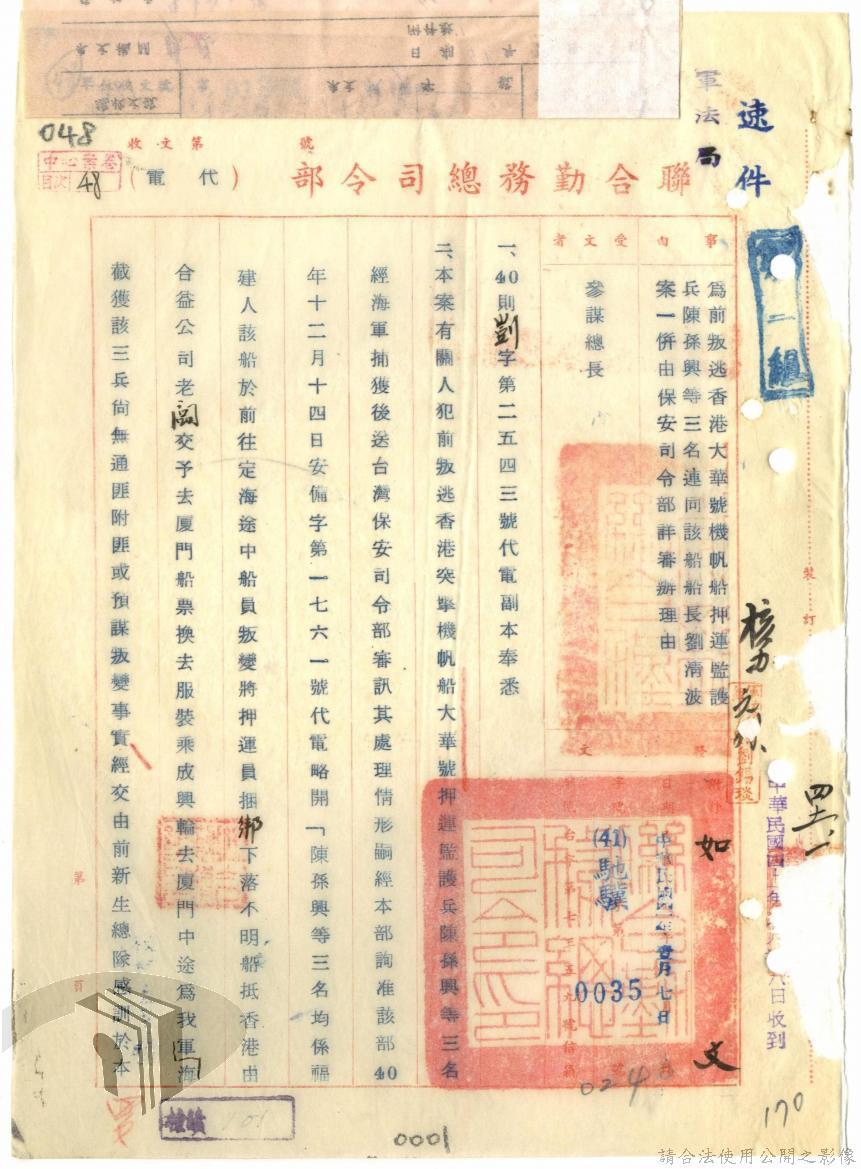 速件
軍法局
聯合勤務總司令部（代電）
收文第　號
048
中心案卷
目次 48
事由
為前叛逃香港大華號機帆船押運監護
兵陳孫興等三名連同該船船長劉清波
案一併由保安司令部詳審辦理由
受文者
參謀總長
如文
中華民國四一年壹月七日
(41)馳驥
0035
一、40則劉字第二五四三號代電副本奉悉
二、本案有關人犯前叛逃香港突擊機帆船大華號押運監護兵陳孫興等三名
經海軍捕獲後送台灣保安司令部審訊其處理情形嗣經本部詢准該部40
年十二月十四日安備字第一七六一號代電略開「陳孫興等三名均係福
建人該船於前往定海途中船員叛變將押運員捆綁下落不明船抵香港由
合益公司老闆交予去廈門船票換去服裝乘成興輪去廈門中途為我軍海
截獲該三兵尚無通匪附匪或預謀叛變事實經交由前新生總隊感訓於本
第　頁
裝訂
四六一
170
0001
請合法使用公開之影像